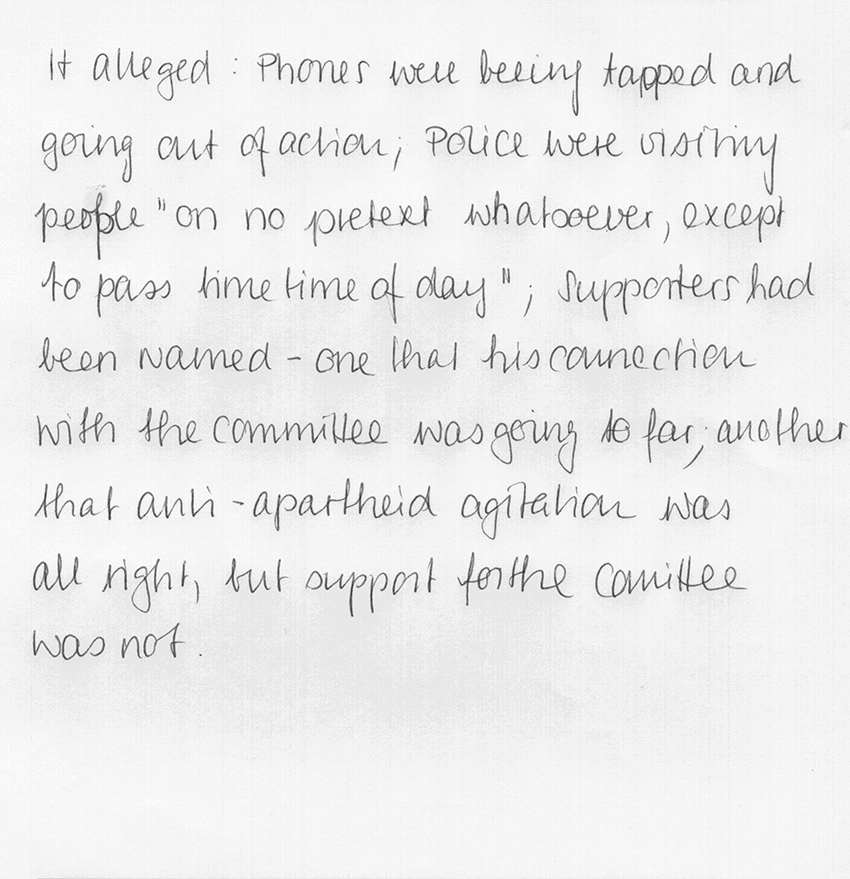 It alleged : Phones were beeing tapped and
going out of action; Police were visiting
people "on no pretext whatsoever, except
to pass time time of day"; supporters had
been named - one that his connection
with the committee was going to far; another
that anti-apartheid agitation was
all right, but support for the Comittee
was not.